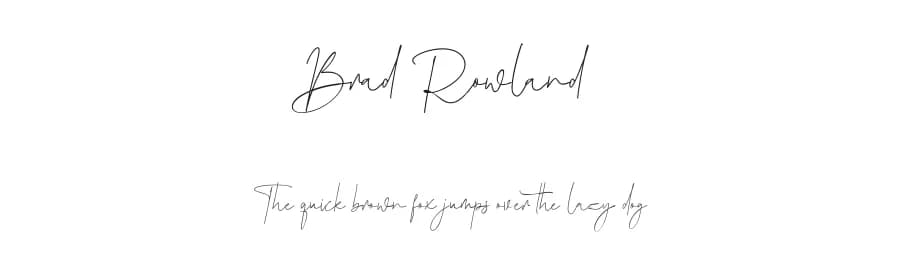 Brad Rowland
The quick brown fox jumps over the lazy dog